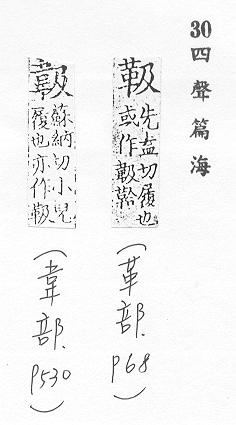 30 四聲篇海
靸
先盍切履也
或作
（革部. P68）
蘇納切小兒
履也亦作靸
（韋部. P530）